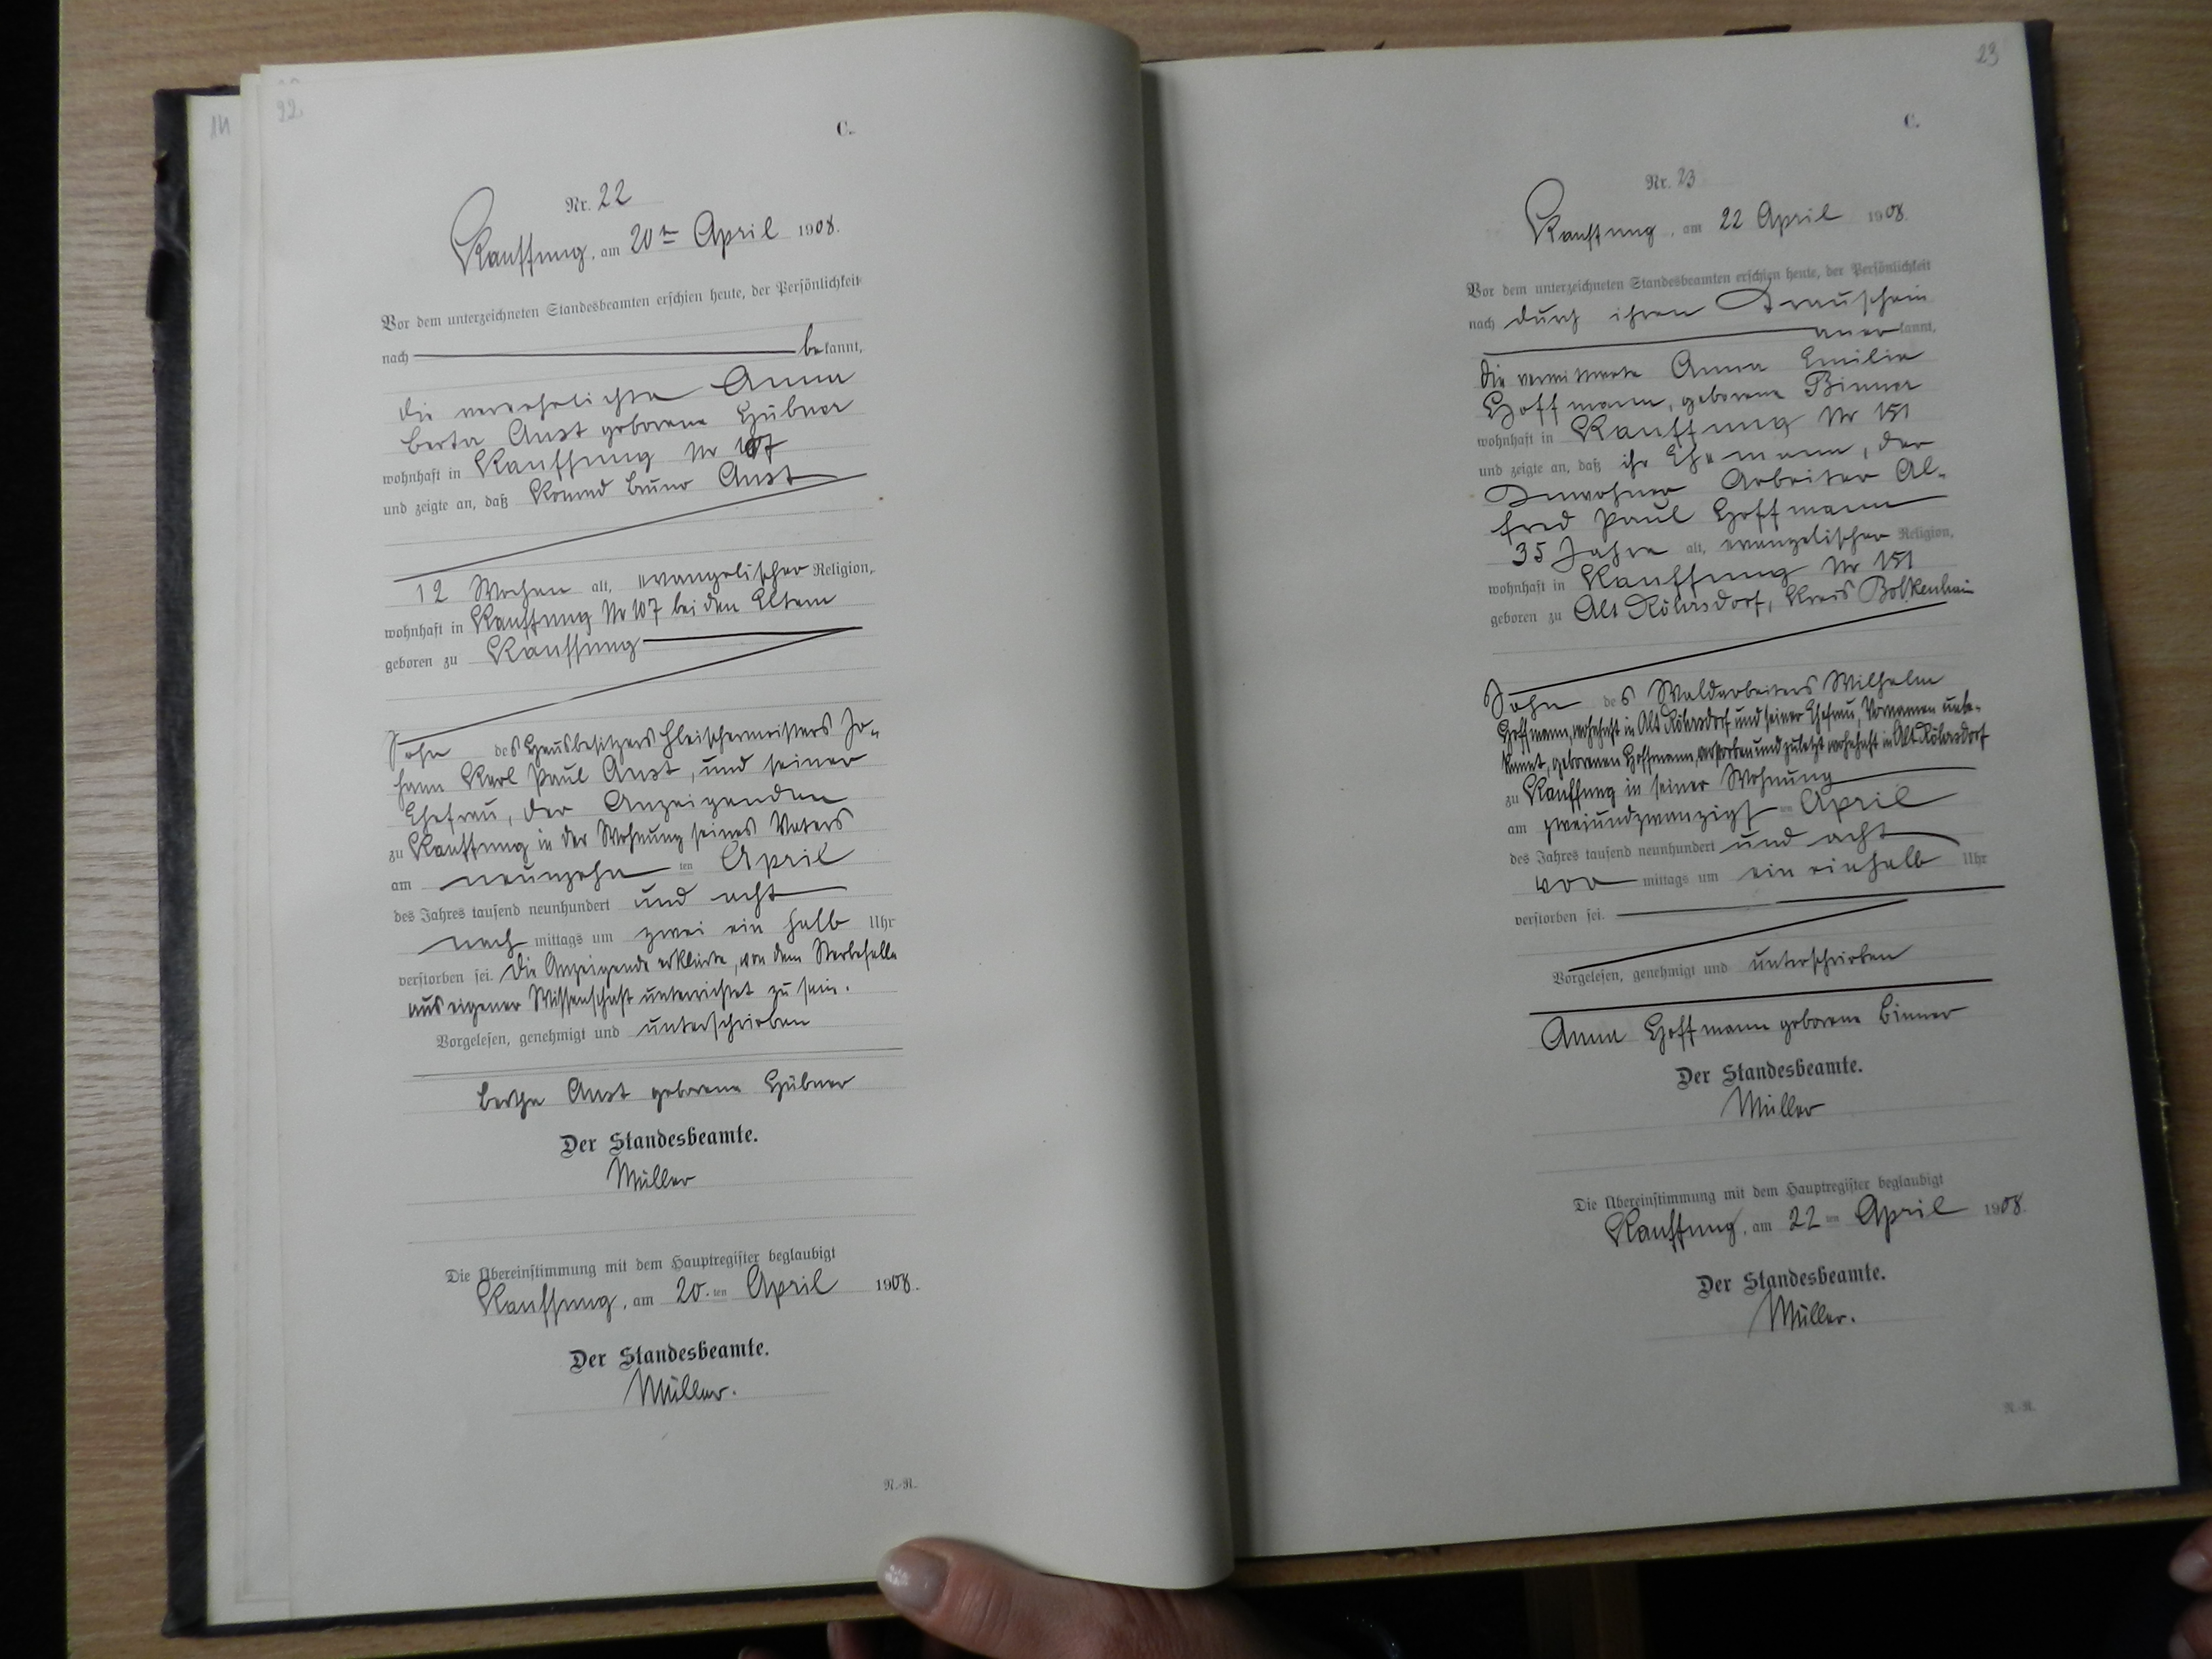 14
22.
C.
Nr. 22
Kauffung, am 20ten April 1908.
Vor dem unterzeichneten Standesbeamten erschien heute, der Persönlichkeit
nach bekannt,
die verehelichte Anna
Berta Aust geborene Hübner
wohnhaft in Kauffung Nr 107
und zeigte an, daß Konrad Bruno Aust
12 Wochen alt, evangelischer Religion,
wohnhaft in Kauffung Nr 107 bei den Eltern
geboren zu Kauffung
Sohn des Hausbesitzers Fleischermeisters Jo-
hann Karl Paul Aust, und seiner
Ehefrau, der Anzeigenden
zu Kauffung in der Wohnung seines Vaters
am neunzehn ten April
des Jahres tausend neunhundert und acht
nach mittags um zwei ein halb Uhr
verstorben sei. Die Anzeigende erklärte, von dem Sterbefalle
aus eigener Wissenschaft unterrichtet zu sein.
Vorgelesen, genehmigt und unterschrieben
Bertha Aust geborene Hübner
Der Standesbeamte.
Müller
Die Übereinstimmung mit dem Hauptregister beglaubigt
Kauffung, am 20. ten April 1908.
Der Standesbeamte.
Müller.
N.-N.
23
C.
Nr. 23
Kauffung, am 22 April 1908.
Vor dem unterzeichneten Standesbeamten erschien heute, der Persönlichkeit
nach durch ihren Trauschein
anerkannt,
die verwitwete Anna Emilie
Hoffmann, geborene Binner
wohnhaft in Kauffung Nr 151
und zeigte an, daß ihr Ehemann, der
Inwohner Arbeiter Al-
fred Paul Hoffmann
35 Jahre alt, evangelischer Religion,
wohnhaft in Kauffung Nr 151
geboren zu Alt Röhrsdorf, Kreis Bolkenhain
Sohn des Waldarbeiters Wilhelm
Hoffmann, wohnhaft in Alt Röhrsdorf und seiner Ehefrau, Vornamen unbe-
kannt, geborenen Hoffmann, verstorben und zuletzt wohnhaft in Alt Röhrsdorf
zu Kauffung in seiner Wohnung
am zweiundzwanzigs ten April
des Jahres tausend neunhundert und acht
vor mittags um ein einhalb Uhr
verstorben sei.
Vorgelesen, genehmigt und unterschrieben
Anna Hoffmann geborene Binner
Der Standesbeamte.
Müller
Die Übereinstimmung mit dem Hauptregister beglaubigt
Kauffung, am 22 ten April 1908.
Der Standesbeamte.
Müller.
N.-N.